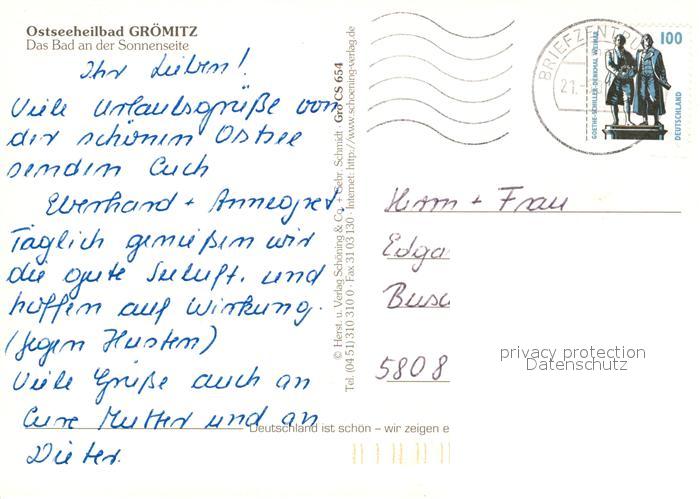 Ostseeheilbad GRÖMITZ
Das Bad an der Sonnenseite
Ihr Lieben!
Viele Urlaubsgrüße von
der schönen Ostsee
senden Euch
Eberhard + Annegret
Täglich genießen wir
die gute Seeluft. und
hoffen auf Wirkung.
(gegen Husten)
Viele Grüße auch an
Eure Mutter und an
Dieter.
© Herst. u. Verlag Schöning & Co. + Gebr. Schmidt · Grö CS 654
Tel. (04 51) 310 310 0 · Fax 31 03 130 · Internet: http://www.schoening-verlag.de
BRIEFZENTRUM
21.
100
GOETHE-SCHILLER-DENKMAL WEIMAR
DEUTSCHLAND
Herrn + Frau
Edga
Busc
5808
privacy protection
Datenschutz
Deutschland ist schön – wir zeigen e